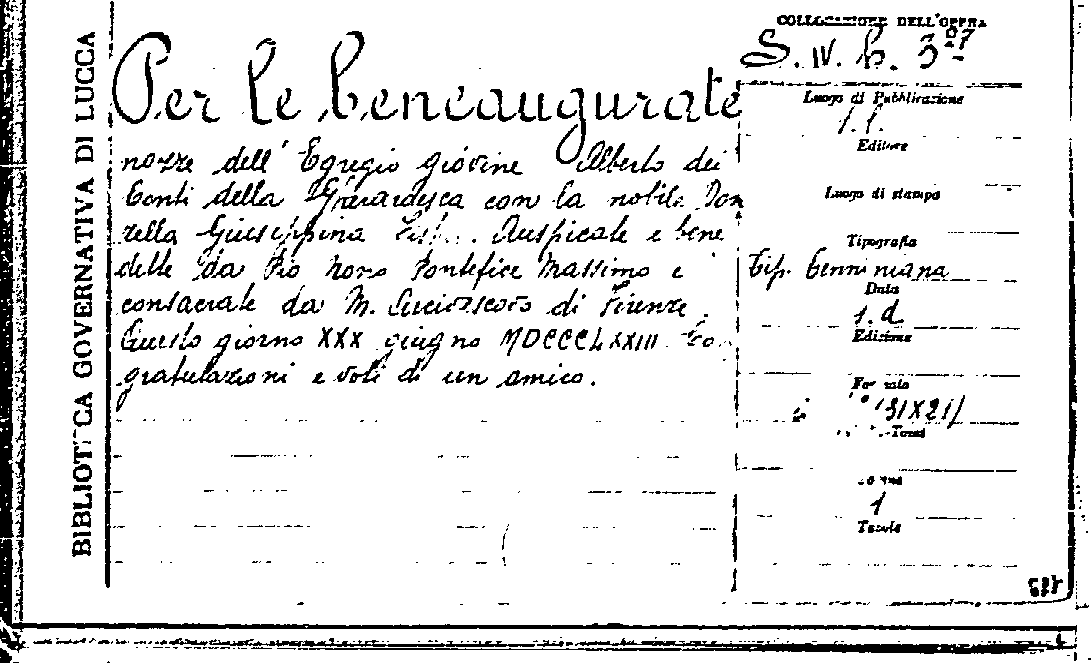 BIBLIOTECA GOVERNATIVA DI LUCCA
Per le beneaugurate
nozze dell' Egregio giovine Alberto dei
Conti della Gherardesca con la nobile Don
zella Giuseppina Auspicate e bene
dette da Pio Nono Pontefice Massimo e
consacrate da M. di Firenze.
Questo giorno XXX giugno MDCCCLXXIII. Con
gratulazioni e voti di un amico.
COLLOCAZIONE DELL'OPERA
S. IV. b. 397
Luogo di Pubblicazione
s.l.
Editore
Luogo di stampa
Tipografia
Tip. Benniniana
Data
s. d.
Edizione
Formato
(31X21)
Tomi
1
Tavole